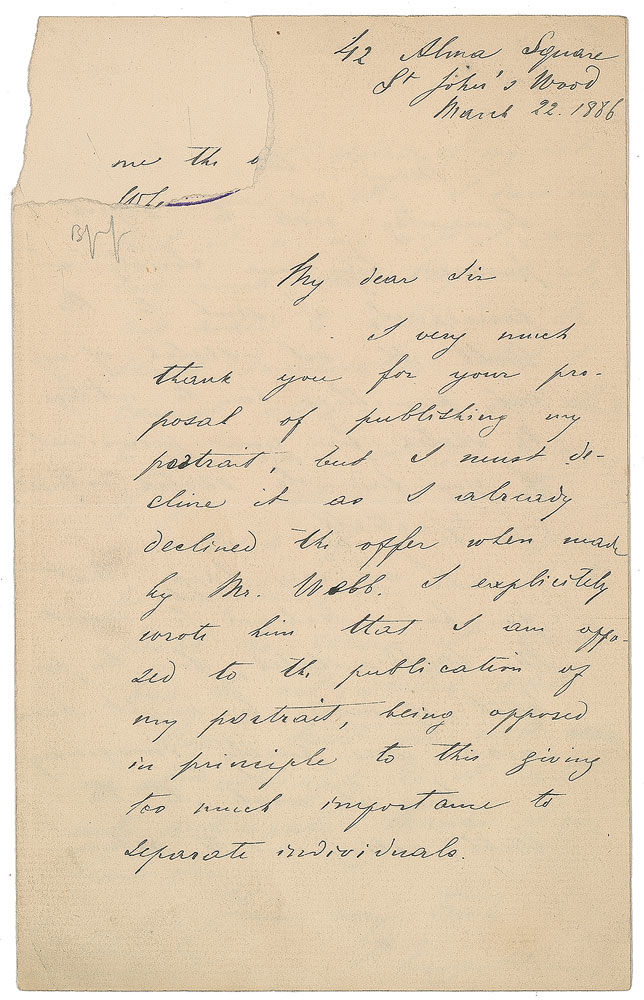 42 Alma Square
St John's Wood
March 22. 1886
one the
My dear Sir
I very much
thank you for your pro-
posal of publishing my
portrait, but I must de-
cline it as I already
declined the offer when made
by Mr. Webb. I explicitely
wrote him that I am oppo-
sed to the publication of
my portrait, being opposed
in principle to this giving
too much importance to
separate individuals.